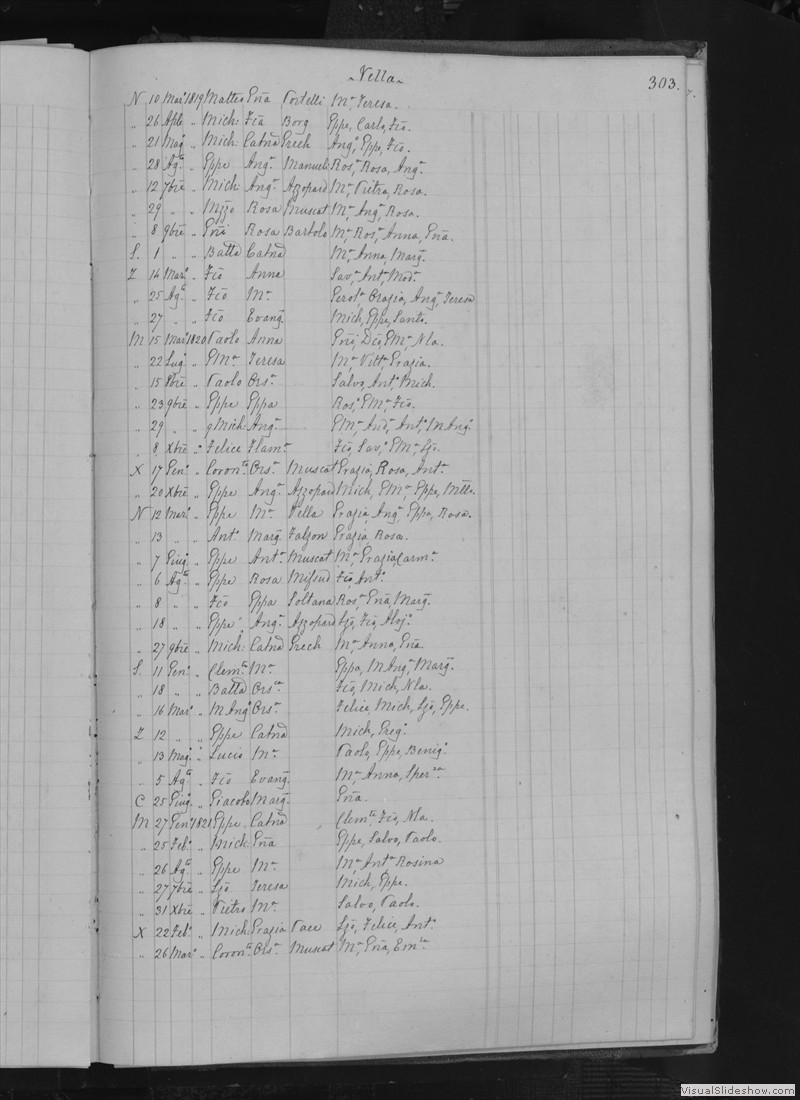 ~Vella~
303.
N 10 Mar° 1819 Matteo Gña Portelli Mª, Teresa.
„ 26 Aple „ Mich: Fca Borg Gppe, Carlo, Fco.
„ 21 Mag° „ Mich: Catnd Grech Ang°, Gppe, Fco.
„ 28 Agto „ Gppe Angª Manueli Rosª, Rosa, Angª.
„ 12 7bre „ Mich: Angª Azzopard Mª, Pietra, Rosa.
„ 29 „ „ Mzzo Rosa Muscat Mª, Angª, Rosa.
„ 8 9bre „ Gñi Rosa Bartolo Mª, Rosª, Anna, Gña.
S. 1 „ „ Batta Catnd Mª, Anna, Margª.
Z 14 Mar° „ Fco Anna Savª, Antª, Modª.
„ 25 Agto „ Fco Mª Grazia, Angª, Teresa
„ 27 „ „ Fco Evangª Mich, Gppe, Santo.
M 15 Mar° 1820 Paolo Anna Gñi, GMª, Nla.
„ 22 Lug° „ GMª Teresa Mª Vittª Grazia.
„ 15 8bre „ Paolo Orsª Salvo, Ant°, Mich.
„ 23 9bre „ Gppe Gppa Ros°, GMª, Fco.
„ 29 „ „ Mich: Angª GMª, And°, Ant°, M Ang°.
„ 8 Xbre „ Felice Flamª Fco, Sav°, GMª, Lzo.
X 17 Gen° „ Coronto Orsª Muscat Grazia, Rosa, Antª.
„ 20 Xbre „ Gppe Angª Azzopard Mich, GMª, Gppe, Mtteo.
N 12 Mar° „ Gppe Mª Vella Grazia, Angª, Gppa, Rosa.
„ 13 „ „ Ant° Margª Falzon Grazia, Rosa.
„ 7 Giug° „ Gppe Antª Muscat Mª, Grazia, Carmª.
„ 6 Agto „ Gppe Rosa Mifsud Fco, Ant°.
„ 8 „ „ Fco Gppa Soltana Rosª, Gña, Margª.
„ 18 „ „ Gppe Angª Azzopard Lzo, Fco, Aloj°.
„ 27 9bre „ Mich: Catnd Grech Mª, Anna, Gña.
S. 11 Gen° „ Clemte Mª Gppa, M Angª, Margª.
„ 18 „ „ Batta Orsª Fco, Mich, Nla.
„ 16 Mar° „ M Ang° Orsª Felice, Mich, Lzo, Gppe.
Z 12 „ „ Gppe Catnd Mich, Greg°.
„ 13 Mag° „ Lucio Mª Paolo, Gppe, Benig°.
„ 5 Agto „ Fco Evangª Mª, Anna, Sperza
C 25 Giug° „ Giacobo Margª Gña.
M 27 Gen° 1821 Gppe Catnd Clemte, Fco, Nla.
„ 25 Feb° „ Mich: Gña Gppe, Salvo, Paolo.
„ 26 Agto „ Gppe Mª Mª, Antª Rosina
„ 27 7bre „ Lzo Teresa Mich, Gppe.
„ 31 Xbre „ Pietro Mª Salvo, Paolo.
X 22 Feb° „ Mich: Grazia Pace Lzo, Felice, Ant°.
„ 26 Mar° „ Coronto Orsª Muscat Mª, Gña, Emla.
VisualSlideshow.com